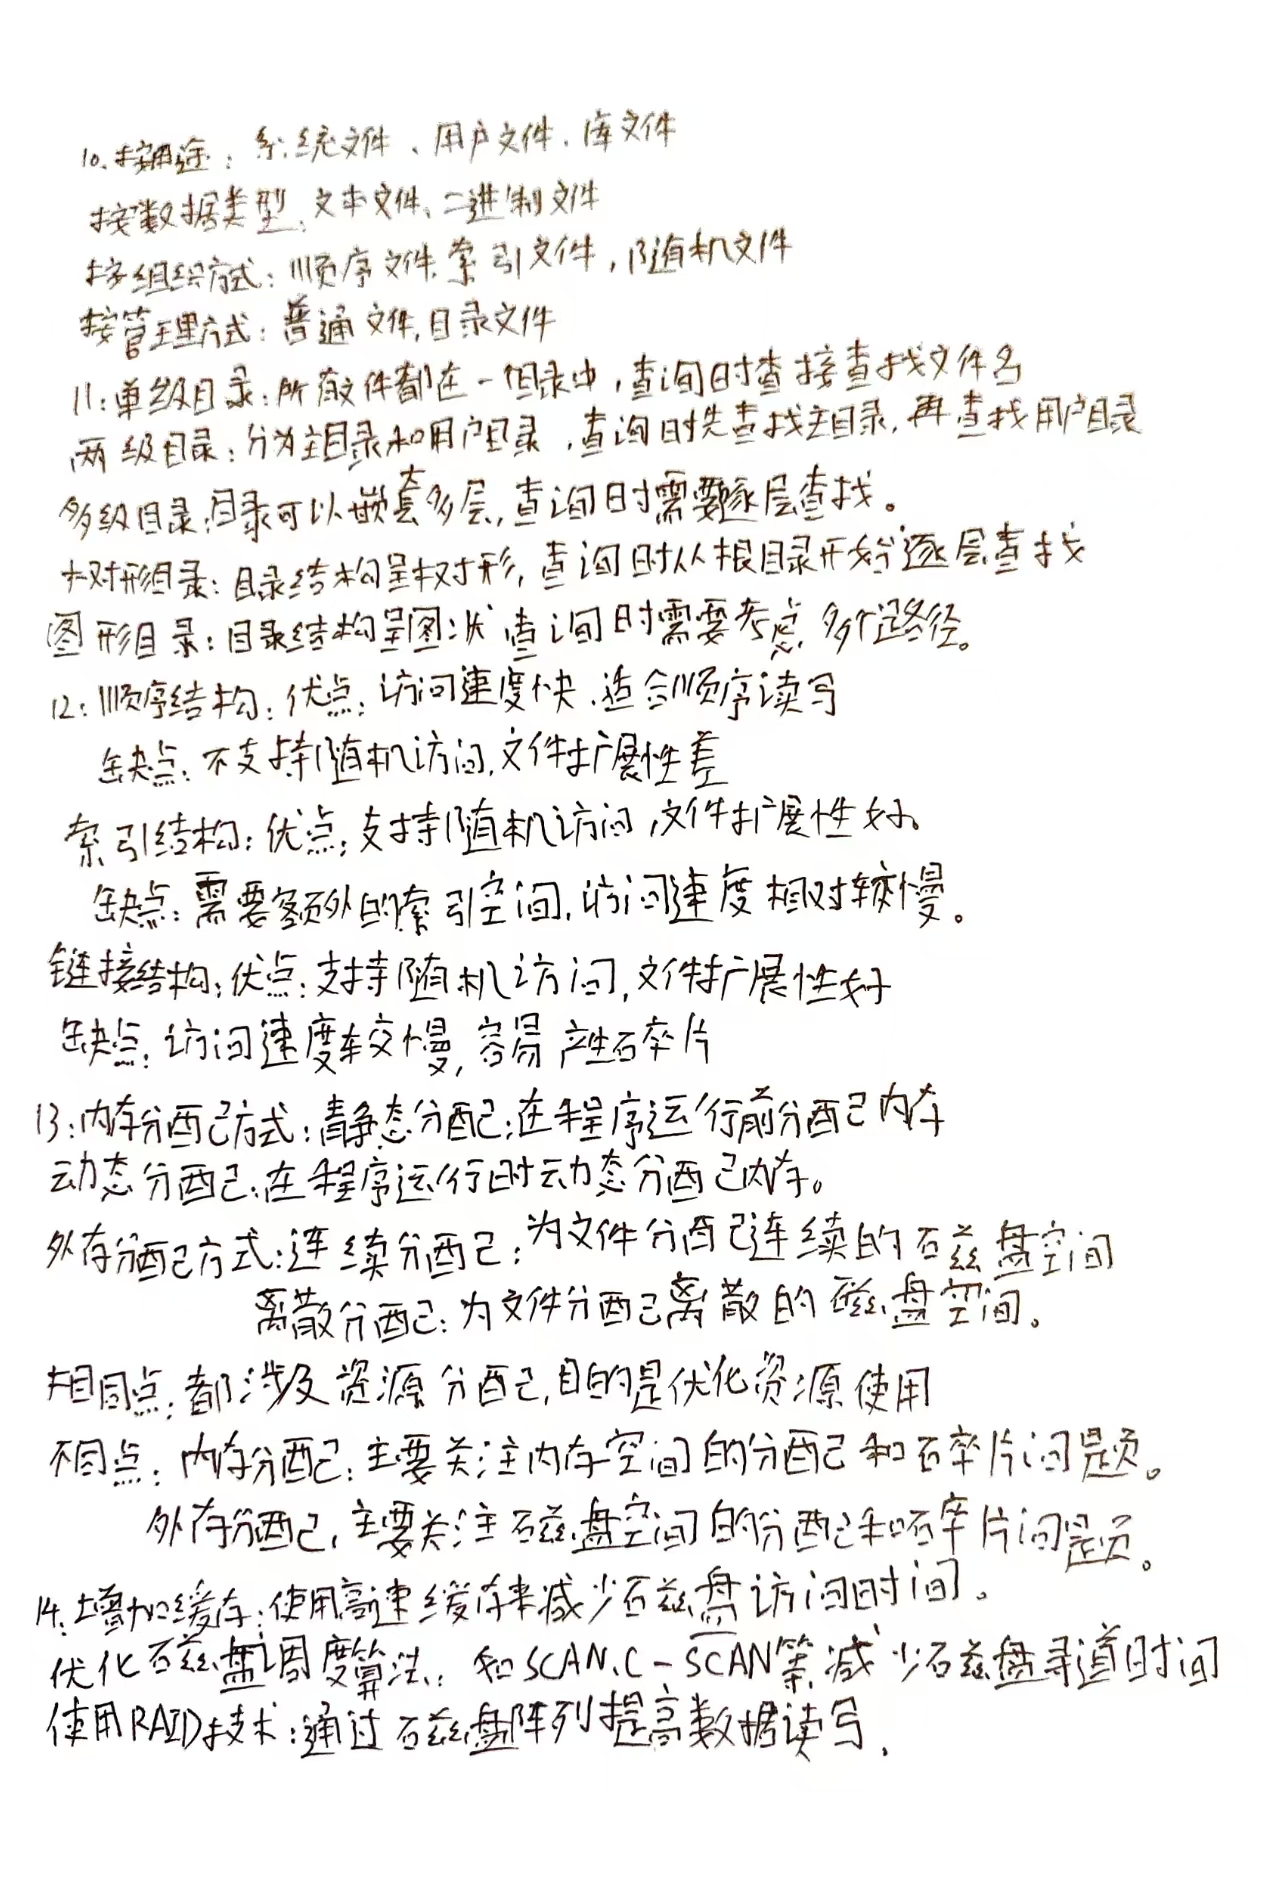 10.按用途：系统文件、用户文件、库文件
按数据类型：文本文件、二进制文件
按组织方式：顺序文件、索引文件，随机文件
按管理方式：普通文件，目录文件
11：单级目录：所有文件都在一个目录中，查询时查接查找文件名
两级目录：分为主目录和用户目录，查询时先查找主目录，再查找用户目录
多级目录：目录可以嵌套多层，查询时需要逐层查找。
树形目录：目录结构呈树形，查询时从根目录开始逐层查找
图形目录：目录结构呈图状 查询时需要考虑多个路径。
12：顺序结构：优点：访问速度快、适合顺序读写
缺点：不支持随机访问，文件扩展性差
索引结构：优点：支持随机访问，文件扩展性好。
缺点：需要额外的索引空间，访问速度相对较慢。
链接结构：优点：支持随机访问，文件扩展性好
缺点：访问速度较慢，容易产生碎片
13：内存分配方式：静态分配：在程序运行前分配内存
动态分配：在程序运行时动态分配内存。
外存分配方式：连续分配：为文件分配连续的磁盘空间
离散分配：为文件分配离散的磁盘空间。
相同点：都涉及资源分配，目的是优化资源使用
不同点：内存分配：主要关注内存空间的分配和碎片问题。
外存分配：主要关注磁盘空间的分配和碎片问题。
14：增加缓存：使用高速缓存来减少磁盘访问时间。
优化磁盘调度算法：和SCAN、C-SCAN等，减少磁盘寻道时间
使用RAID技术：通过磁盘阵列提高数据读写.